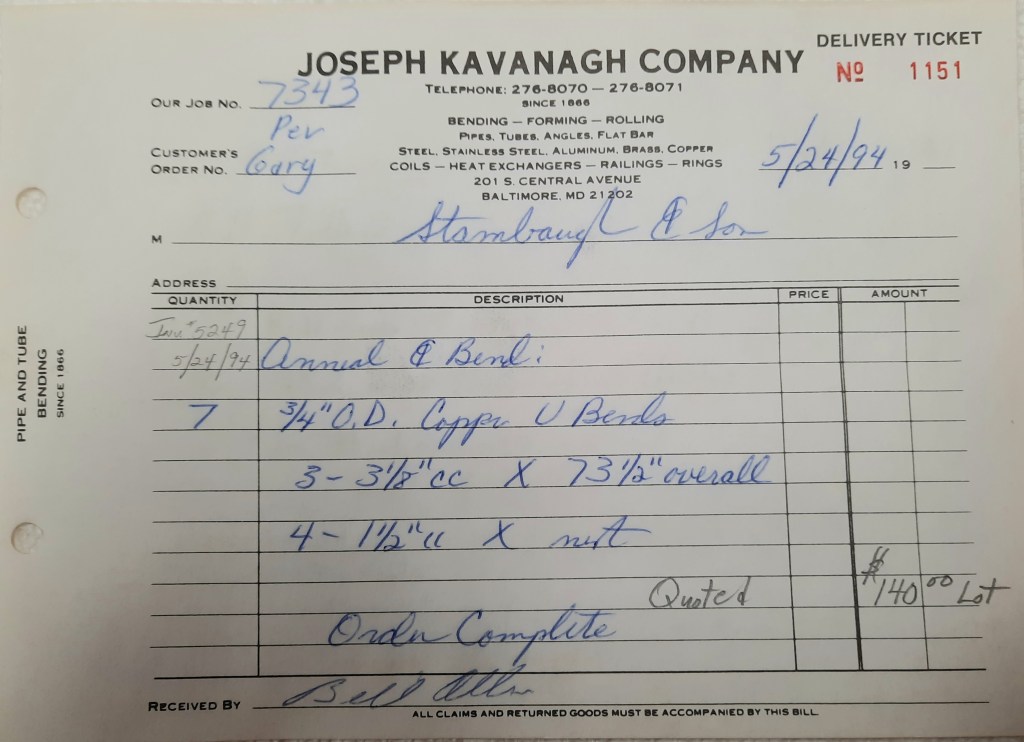 DELIVERY TICKET
JOSEPH KAVANAGH COMPANY
Nº 1151
TELEPHONE: 276-8070 — 276-8071
SINCE 1866
OUR JOB NO. 7343
BENDING — FORMING — ROLLING
PIPES, TUBES, ANGLES, FLAT BAR
STEEL, STAINLESS STEEL, ALUMINUM, BRASS, COPPER
COILS — HEAT EXCHANGERS — RAILINGS — RINGS
201 S. CENTRAL AVENUE
BALTIMORE, MD 21202
Per
CUSTOMER'S
ORDER NO. Gary
5/24/94 19
M Stambaugh & Son
ADDRESS
QUANTITY DESCRIPTION PRICE AMOUNT
Inv. # 5249
5/24/94 Anneal & Bend:
7 3/4" O.D. Copper U Bends
3 - 3 1/8" cc X 73 1/2" overall
4 - 1 1/2" cc X
Quoted $140.00 Lot
Order Complete
RECEIVED BY Bill
ALL CLAIMS AND RETURNED GOODS MUST BE ACCOMPANIED BY THIS BILL
PIPE AND TUBE
BENDING
SINCE 1866